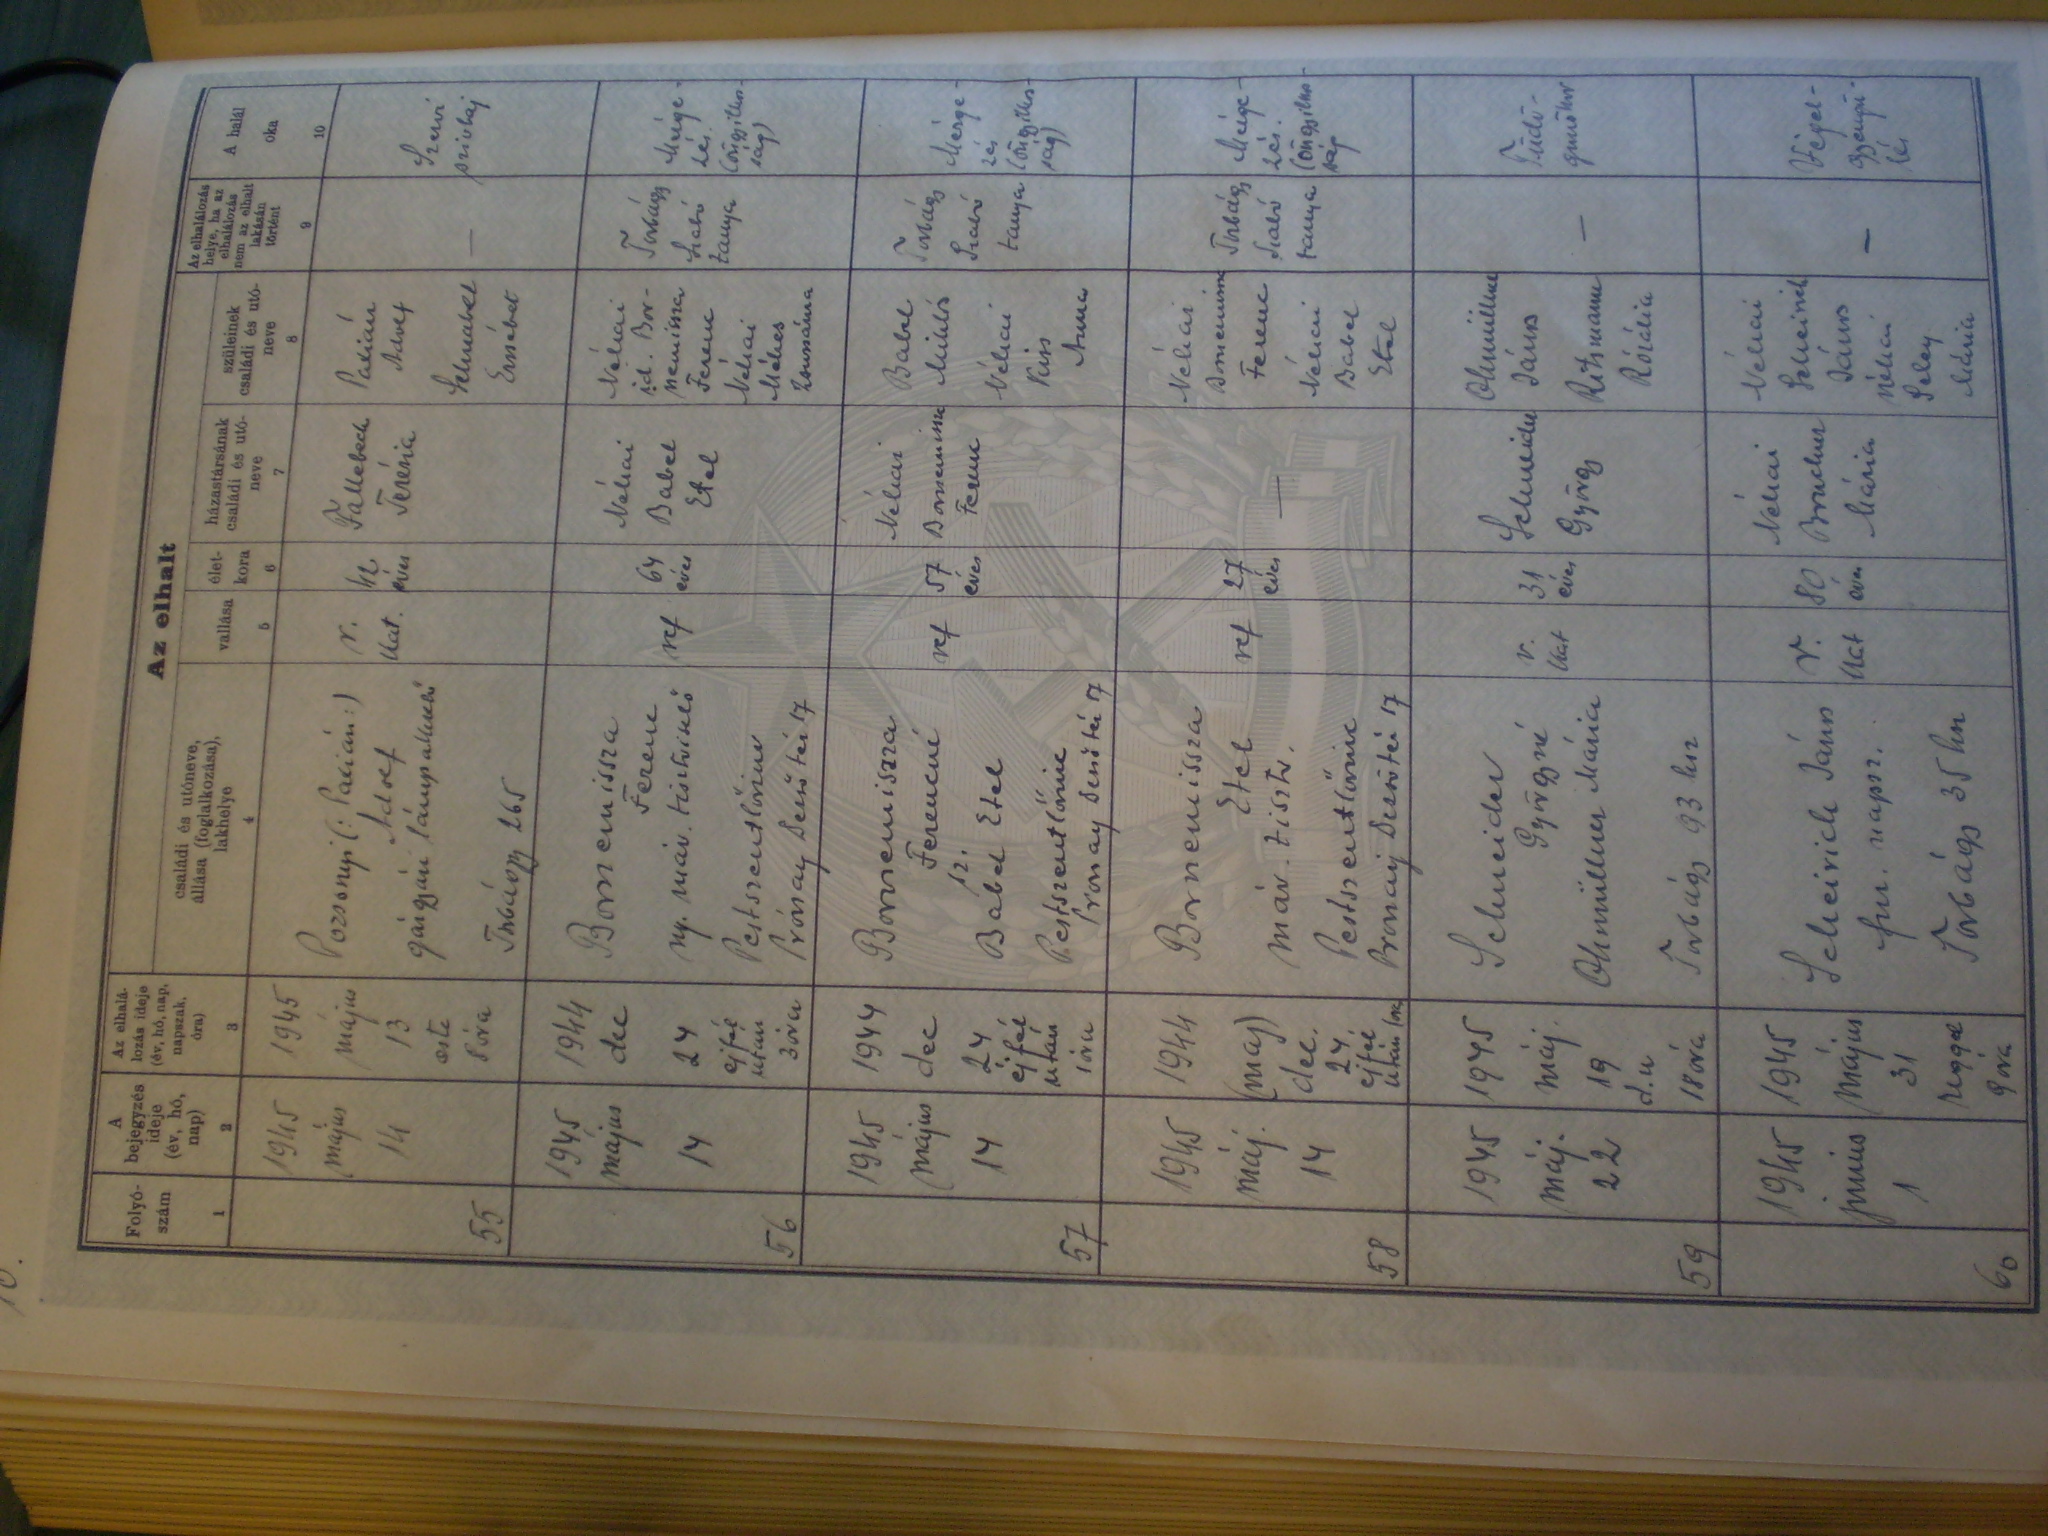 Az elhalt
Folyó-
szám
1
A
bejegyzés
ideje
(év, hó,
nap)
2
Az elhalá-
lozás ideje
(év, hó, nap,
napszak,
óra)
3
családi és utóneve,
állása (foglalkozása),
lakhelye
4
vallása
5
élet-
kora
6
házastársának
családi és utó-
neve
7
szüleinek
családi és utó-
neve
8
Az elhalálozás
helye, ha az
elhalálozás
nem az elhalt
lakásán
történt
9
A halál
oka
10
55
1945
május
14
1945
május
13
este
8 óra
Pozsonyi (: Pacián :)
Adolf
Torbágy 265
r.
kat.
42
éves
Terézia
Pacián
Adolf
Schnabel
Erzsébet
—
Szervi
szívbaj
56
1945
május
14
1944
dec
24
éjfél
után
3 óra
Bornemissza
Ferenc
ny. máv. tisztviselő
Pestszentlőrinc
Prónay Dezső tér 17
ref
64
éves
Néhai
Babel
Etel
Néhai
id. Bor-
nemissza
Ferenc
Néhai
Méhes
Zsuzsánna
Torbágy
Szabó
tanya
Mérge-
zés.
(öngyilkos-
ság)
57
1945
május
14
1944
dec
24
éjfél
után
1 óra
Bornemissza
Ferencné
sz.
Bábel Etel
Pestszentlőrinc
Prónay Dezső tér 17
ref
57
éves
Néhai
Bornemissza
Ferenc
Babel
Miklós
Néhai
Kiss
Anna
Torbágy
Szabó
tanya
Mérge-
zés
(öngyilkos-
ság)
58
1945
máj.
14
1944
(maj)
dec.
24
éjfél
után
Bornemissza
Etel
máv. tisztv.
Pestszentlőrinc
Pronay Dezső tér 17
ref
27
éves
—
Néhai
Bornemissza
Ferenc
Néhai
Babel
Etel
Torbágy
Szabó
tanya
Mérge-
zés.
(öngyilkos-
ság
59
1945
máj.
22
1945
máj.
19
d.u
18 óra
Schneider
Györgyné
Ohmüllner Mária
Torbágy 93 hsz
r.
kat
31
éves
Schneider
György
Ohmüllner
János
Rozália
—
Tüdő-
gümőkor
60
1945
június
1
1945
május
31
reggel
9 óra
Scheirich János
Torbágy 35 hsz
r.
kat
80
éves
Néhai
Mária
Néhai
Scheirich
János
néhai
Mária
—
Végel-
gyengü-
lés